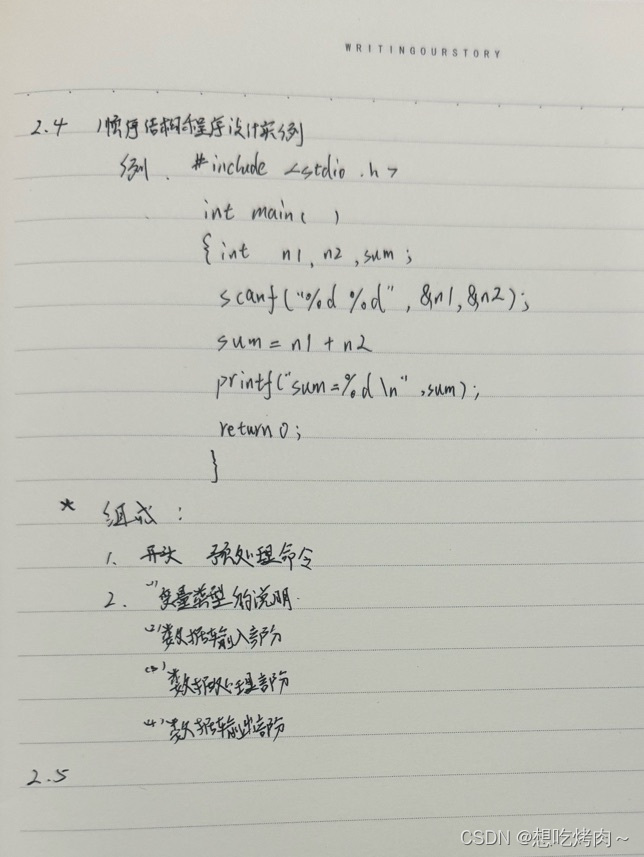 WRITINGOURSTORY
2.4 顺序结构程序设计实例
例. #include <stdio.h>
int main( )
{int n1, n2, sum;
scanf("%d %d", &n1, &n2);
sum = n1 + n2
printf("sum=%d\n", sum);
return 0;
}
* 组成:
1. 开头 预处理命令
2. (1) 变量类型的说明.
(2) 数据输入部分
(3) 数据处理部分
(4) 数据输出部分
2.5
CSDN @想吃烤肉~